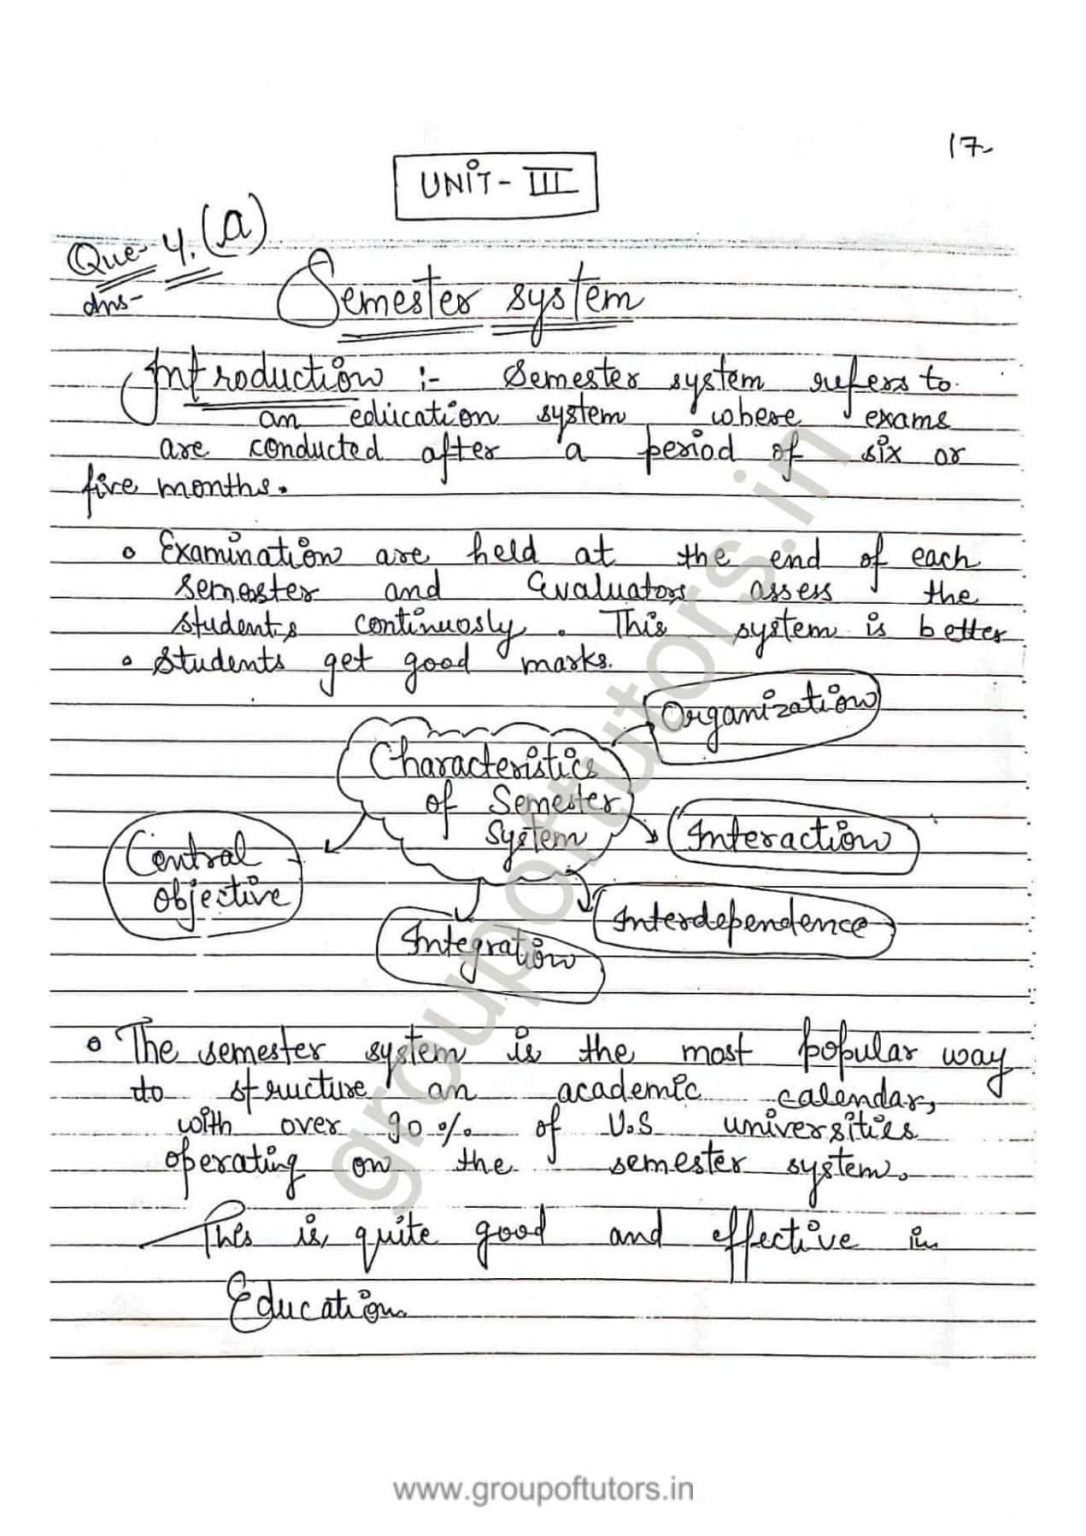 17
UNIT - III
Que- 4. (a)
Ans-
Semester system
Introduction :- Semester system refers to
an education system where exams
are conducted after a period of six or
five months.
Examination are held at the end of each
semester and Evaluators assess the
students continuosly. This system is better
Students get good marks.
Organization
Characteristics
of Semester
System
Interaction
Central
objective
Interdependence
Integration
The semester system is the most popular way
to structure an academic calendar,
with over 90% of U.S universities
operating on the semester system.
This is quite good and effective in
Education.
groupoftutors.in
www.groupoftutors.in